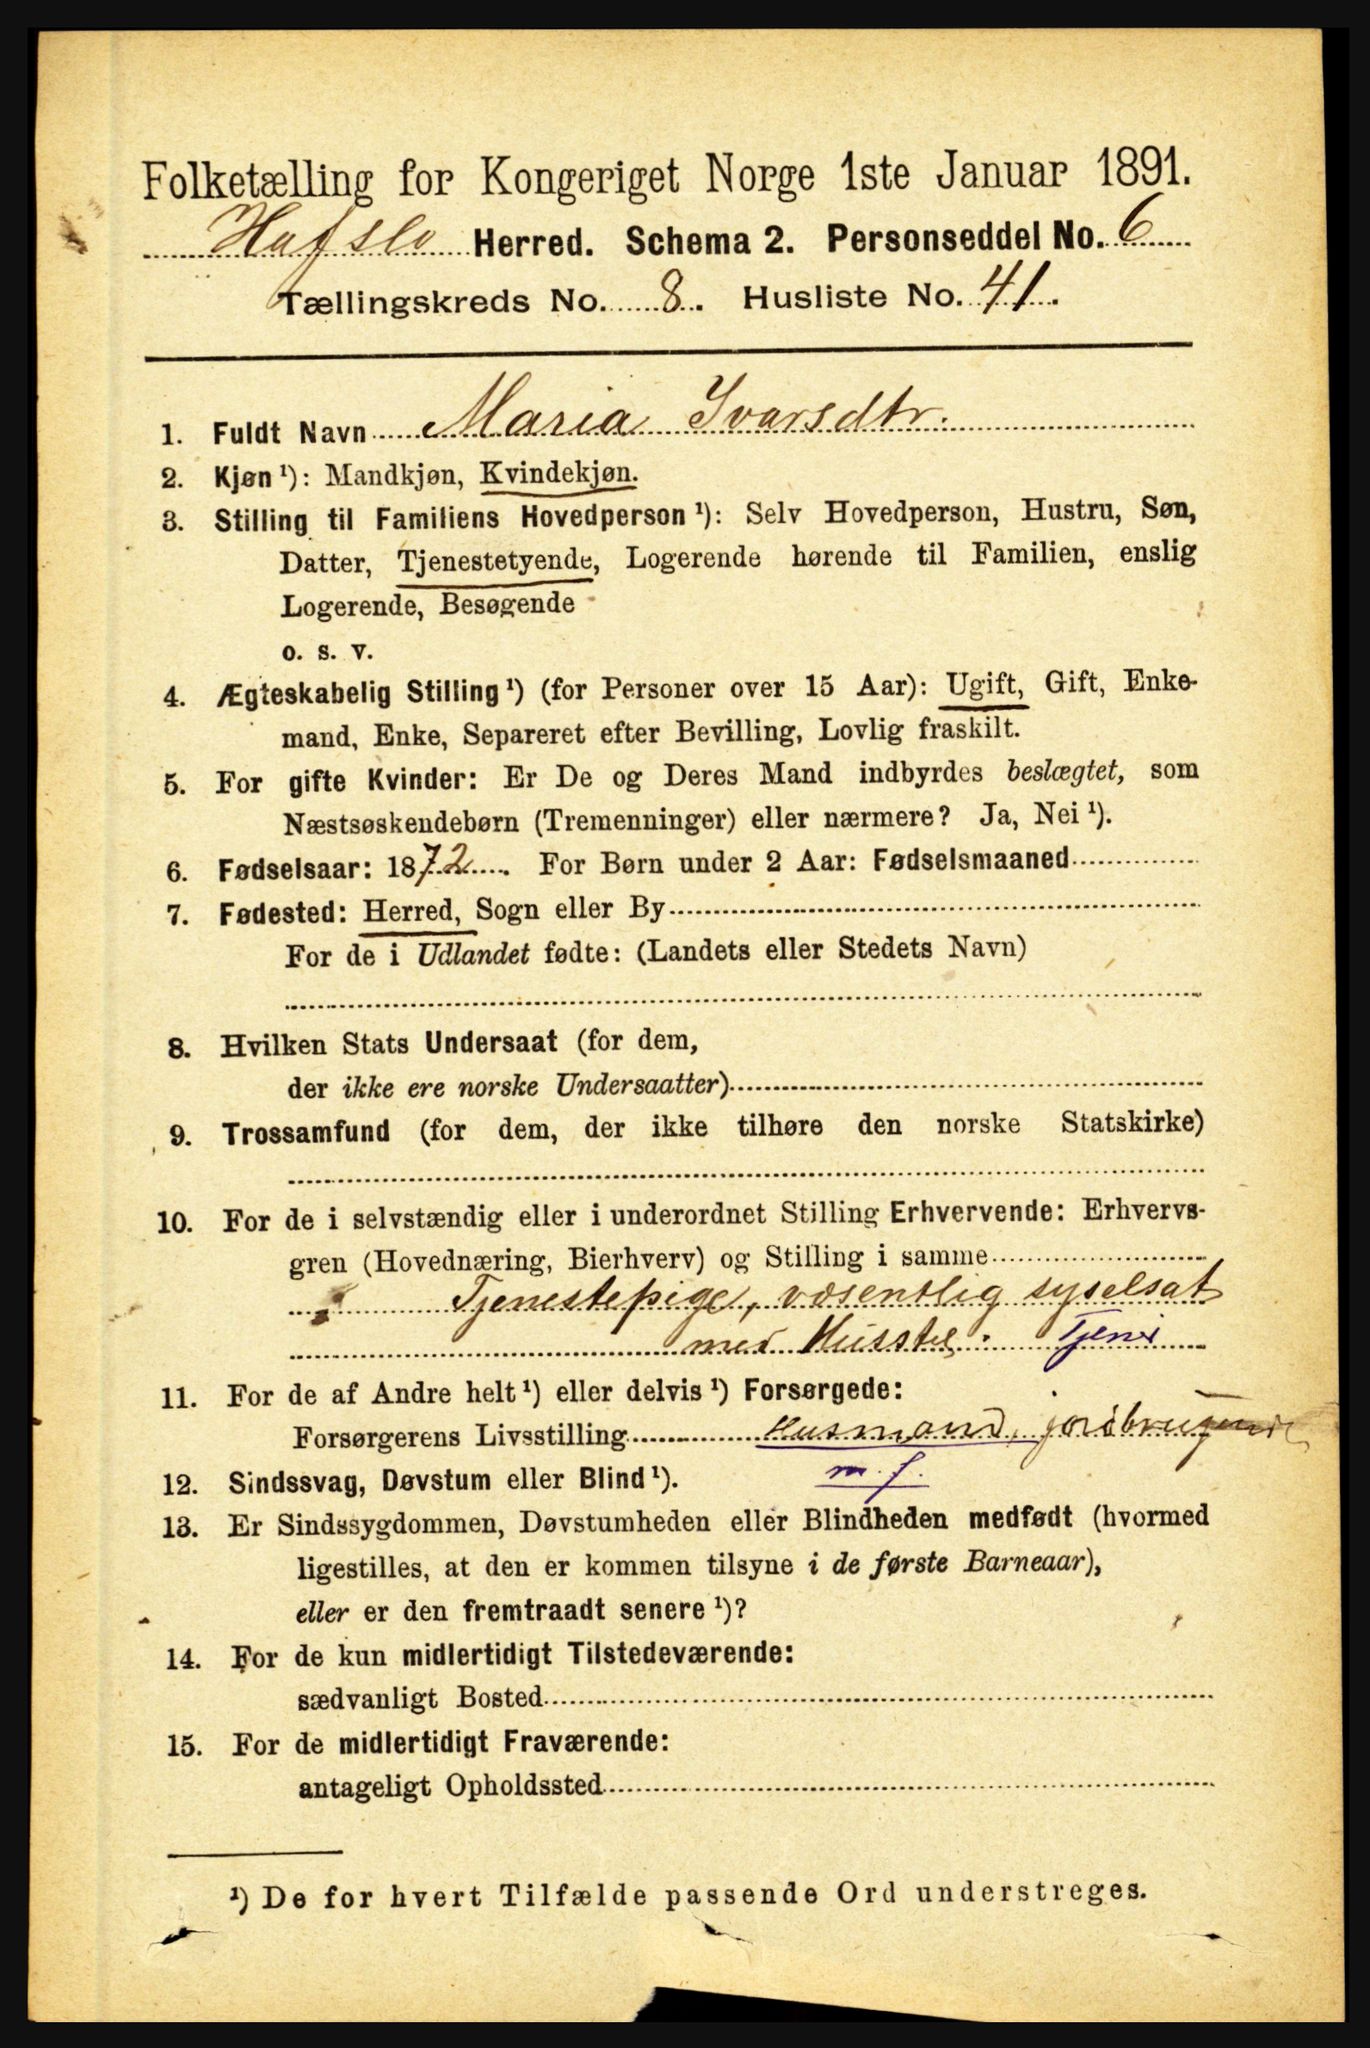 Folketælling for Kongeriget Norge 1ste Januar 1891.
Hafslo Herred. Schema 2. Personseddel No. 6
Tællingskreds No. 8. Husliste No. 41.
1. Fuldt Navn Maria Ivarsdtr.
2. Kjøn ¹): Mandkjøn, Kvindekjøn.
3. Stilling til Familiens Hovedperson ¹): Selv Hovedperson, Hustru, Søn,
Datter, Tjenestetyende, Logerende hørende til Familien, enslig
Logerende, Besøgende
o. s. v.
4. Ægteskabelig Stilling ¹) (for Personer over 15 Aar): Ugift, Gift, Enke-
mand, Enke, Separeret efter Bevilling, Lovlig fraskilt.
5. For gifte Kvinder: Er De og Deres Mand indbyrdes beslægtet, som
Næstsøskendebørn (Tremenninger) eller nærmere? Ja, Nei ¹).
6. Fødselsaar: 1872. For Børn under 2 Aar: Fødselsmaaned
7. Fødested: Herred, Sogn eller By
For de i Udlandet fødte: (Landets eller Stedets Navn)
8. Hvilken Stats Undersaat (for dem,
der ikke ere norske Undersaatter)
9. Trossamfund (for dem, der ikke tilhøre den norske Statskirke)
10. For de i selvstændig eller i underordnet Stilling Erhvervende: Erhvervs-
gren (Hovednæring, Bierhverv) og Stilling i samme
Tjenestepige, væsentlig syselsat
med Husstel. Tjener
11. For de af Andre helt ¹) eller delvis ¹) Forsørgede:
Forsørgerens Livsstilling Husmand, jordbrugende
12. Sindssvag, Døvstum eller Blind ¹). m. j.
13. Er Sindssygdommen, Døvstumheden eller Blindheden medfødt (hvormed
ligestilles, at den er kommen tilsyne i de første Barneaar),
eller er den fremtraadt senere ¹)?
14. For de kun midlertidigt Tilstedeværende:
sædvanligt Bosted
15. For de midlertidigt Fraværende:
antageligt Opholdssted
¹) De for hvert Tilfælde passende Ord understreges.